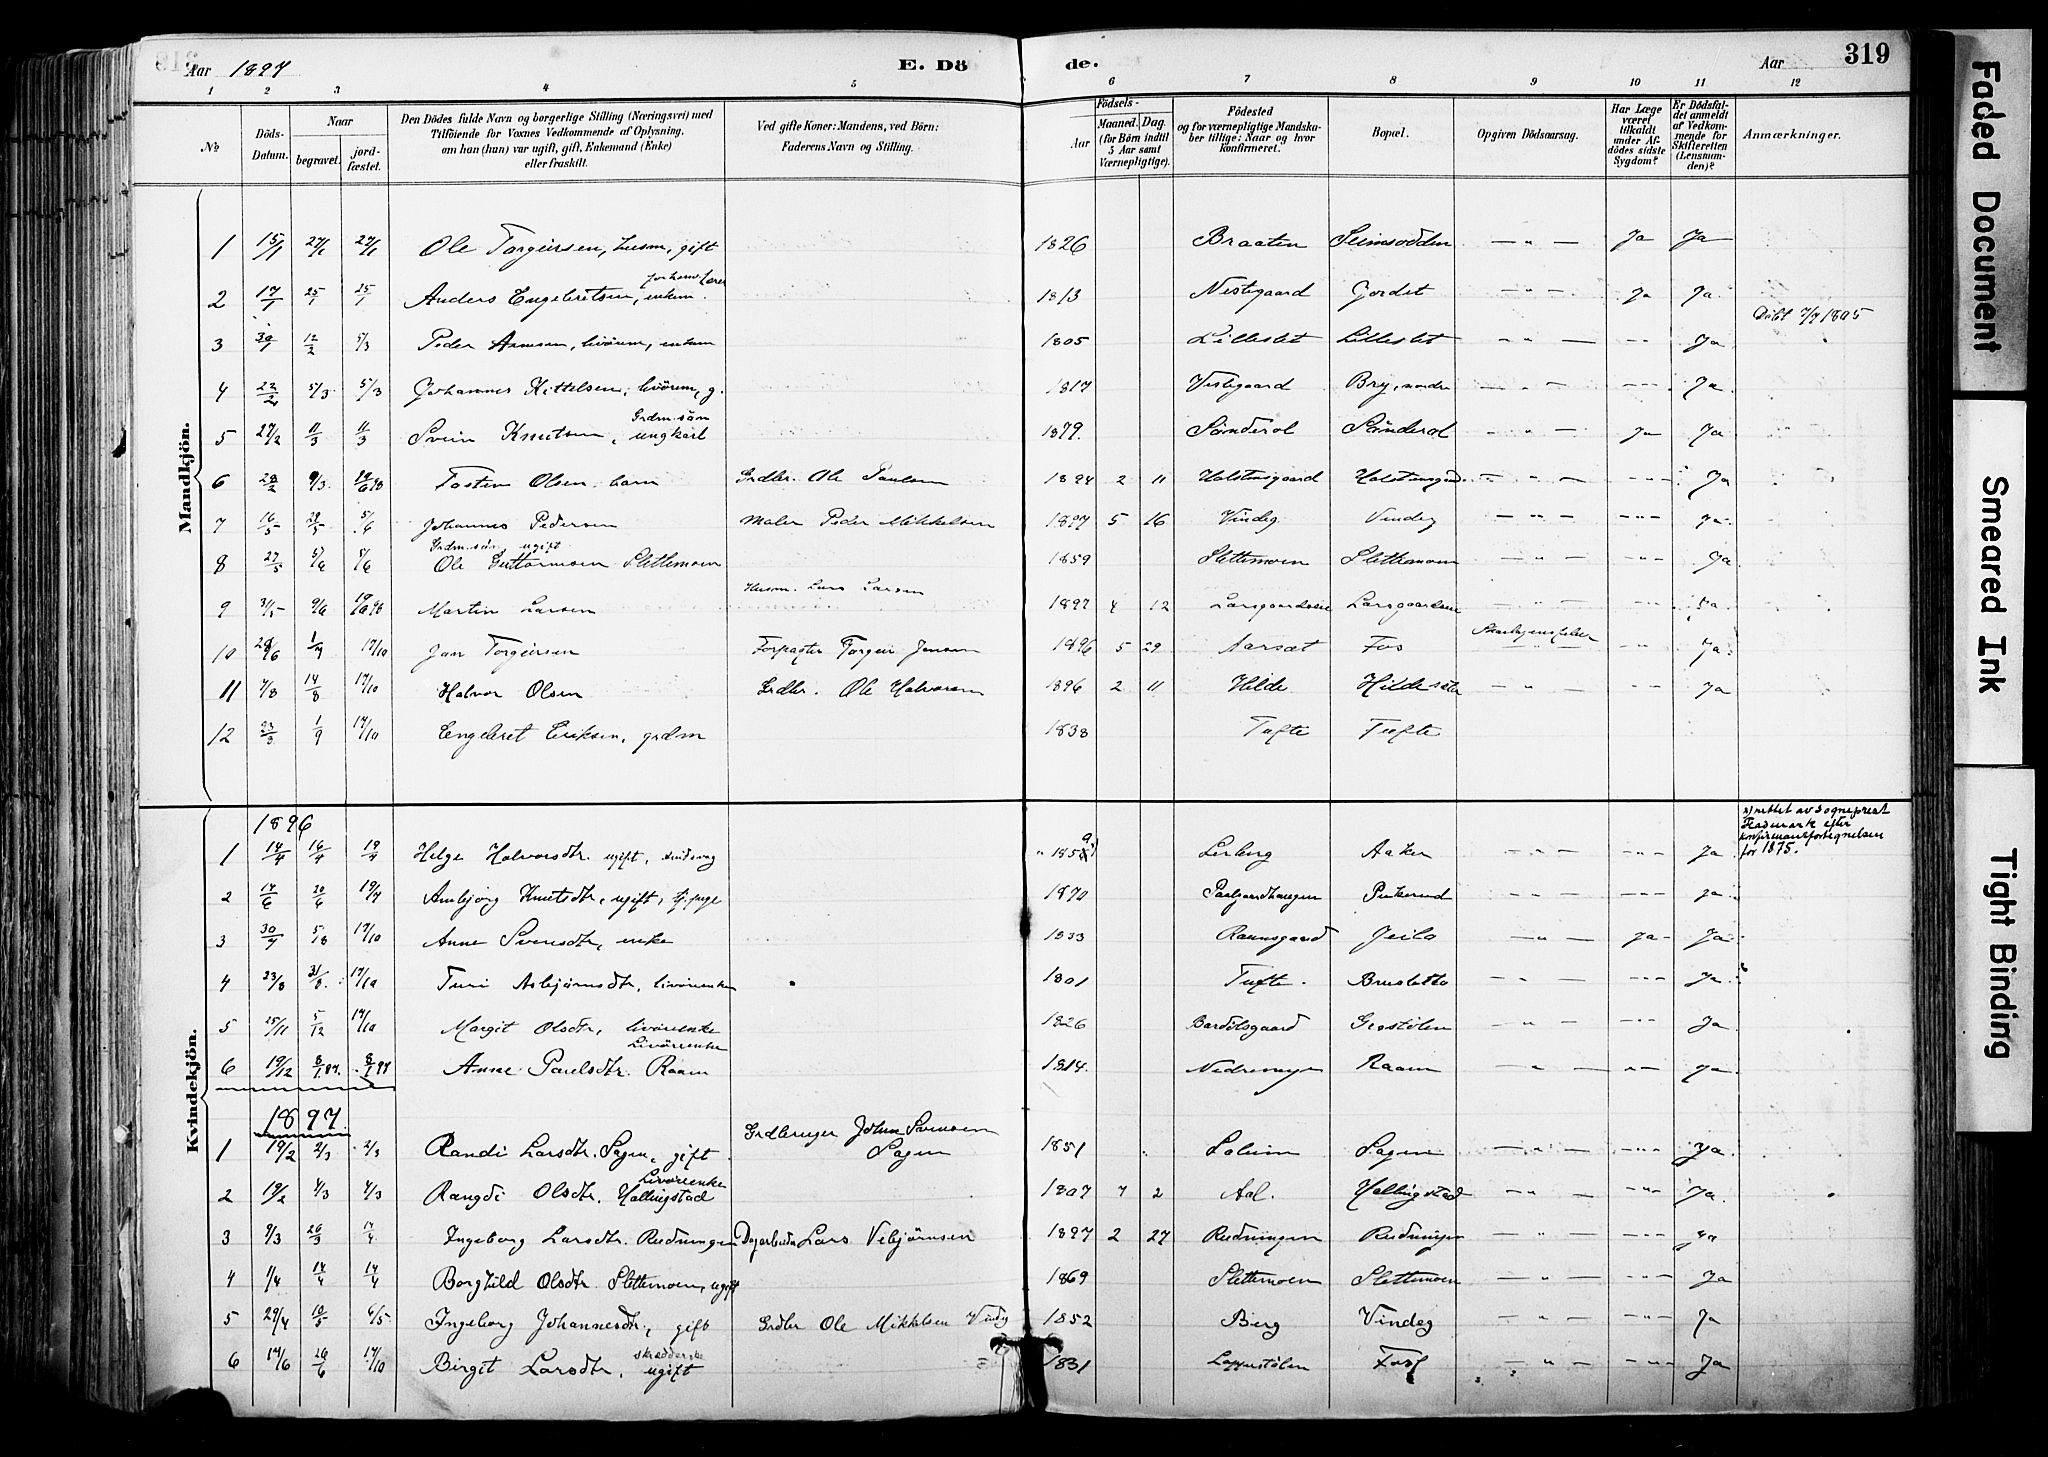 319
Aar 1897
E. Dö
de.
Aar
319
1 2 3 4 5 6 7 8 9 10 11 12
No.
Döds-Datum.
Naar
begravet.
jord-fæstet.
Den Dödes fulde Navn og borgerlige Stilling (Næringsvei) med
Tilföiende for Voxnes Vedkommende af Oplysning.
om han (hun) var ugift, gift, Enkemand (Enke)
eller fraskilt.
Ved gifte Koner: Mandens, ved Börn:
Faderens Navn og Stilling.
Födsels-
Aar
Maaned. Dag.
(for Börn indtil
5 Aar samt
Værnepligtige).
Födested
og for værnepligtige Mandska-
ber tillige: Naar og hvor
konfirmeret.
Bopæl.
Opgiven Dödsaarsag.
Har Læge
været
tilkaldt
under Af-
dödes sidste
Sygdom?
Er Dödsfal-
det anmeldt
af Vedkom-
mende for
Skifteretten
(Lensman-
den)?
Anmærkninger.
Mandkjön.
1 15/1 27/1 27/1 Ole Torgeirsen, husm, gift 1826 Braaten Seimsodden — " — Ja Ja
2 17/1 25/1 25/1 Anders Engebretsen, enkem. 1813 Nestegaard Gordet — " — Ja Ja
Døbt 7/7 1805
3 30/1 12/2 5/3 Peder Arnesen, livörem, enkem 1805 Lilleslet Lilleslet — " — -"- Ja
4 22/2 5/3 5/3 Johannes Kittelsen, livörem, g. 1817 Vestegaard Bry, nordre — " — -"- Ja
Grdm. sön
5 27/2 11/3 11/3 Svein Knutsen, ungkarl 1879. Sönderol Sönderol — " — Ja Ja
6 28/2 9/3 19/6 98 Tosten Olsen, barn Grdbr. Ole Paulsen 1894 2 11 Holstensgaard Holstensgaard — " — -"- Ja
7 16/5 29/5 5/6 Johannes Pedersen Maler Peder Mikkelsen 1897 5 16 Vindeg Vindeg — " — -"- Ja
Grdm. sön ugift
8 27/5 5/6 5/6 Ole Guttormsen Slettemoen 1859 Slettemoen Slettemoen — " — -"- Ja
Husm. Lars Larsen
9 31/5 9/6 19/6 98 Martin Larsen 1897 4 12 Larsgaardseie Larsgaardseie — " — -"- Ja
10 28/6 1/7 17/10 Jon Torgeirsen Forpagter Torgeir Jonsen 1896 5 29 Aarset Fos -"- Ja
11 7/8 14/8 17/10 Halvor Olsen Grdbr. Ole Halvorsen 1896 2 11 Hilde Hilde — " — -"- Ja
12 23/8 1/9 17/10 Engebret Eriksen, grdm 1838 Tufte Tufte
Kvindekjön.
1896
x) rettet av sogneprest
Fladmark efter
konfirmantfortegnelsen
for 1875.
1 14/4 16/4 19/7 Helge Halvorsdtr. ugift, sindsvag Lerberg Aaker — " — -"- Ja
2 14/6 20/6 19/7 Ambjörg Knutsdtr, ugift, tj.pige 1870 Paalgaardhaugen Pukerud — " — -"- Ja
3 30/7 5/8 17/10 Anne Svensdtr, enke 1833 Raunsgaard Geilo — " — Ja Ja
4 23/8 31/8 17/10 Turi Asbjörnsdtr, livörenke 1801 Tufte. Brusletto — " — -"- Ja
5 25/11 5/12 17/10 Margit Olsdtr, livörenke 1826 Bardölsgaard Gjestölen — " — -"- Ja
Livörenke
6 19/12 8/1 97. 8/1 97 Anne Paulsdtr. Raaen 1814. Raaen — " — -"- Ja
1897
Grdbruger Johne Svensen
1 19/2 2/3 2/3 Randi Larsdtr. Sagen, gift Sagen 1851 Soleim Sagen — " — -"- Ja
Livörenke
2 19/2 4/3 4/3 Rangdi Olsdtr. Hallingstad 1807 7 2 Aal. Hallingstad — " — -"- Ja
3 9/3 26/3 14/4 Ingeborg Larsdtr. Rudningen Dagarbeider Lars Vebjörnsen 1897 2 27 Rudningen Rudningen — " — -"- Ja
4 1/4 14/4 14/4 Borghild Olsdtr. Slettemoen, ugift 1869 Slettemoen Slettemoen — " — -"- Ja
5 29/4 10/5 6/5 Ingeborg Johannesdtr, gift Grdbr Ole Mikkelsen Vindeg 1852 Berg Vindeg — " — -"- Ja
6 17/6 26/6 17/10 Birgit Larsdtr. ugift 1831 Lappestölen Foss — " — -"- Ja
Faded Document
Smeared Ink
Tight Binding